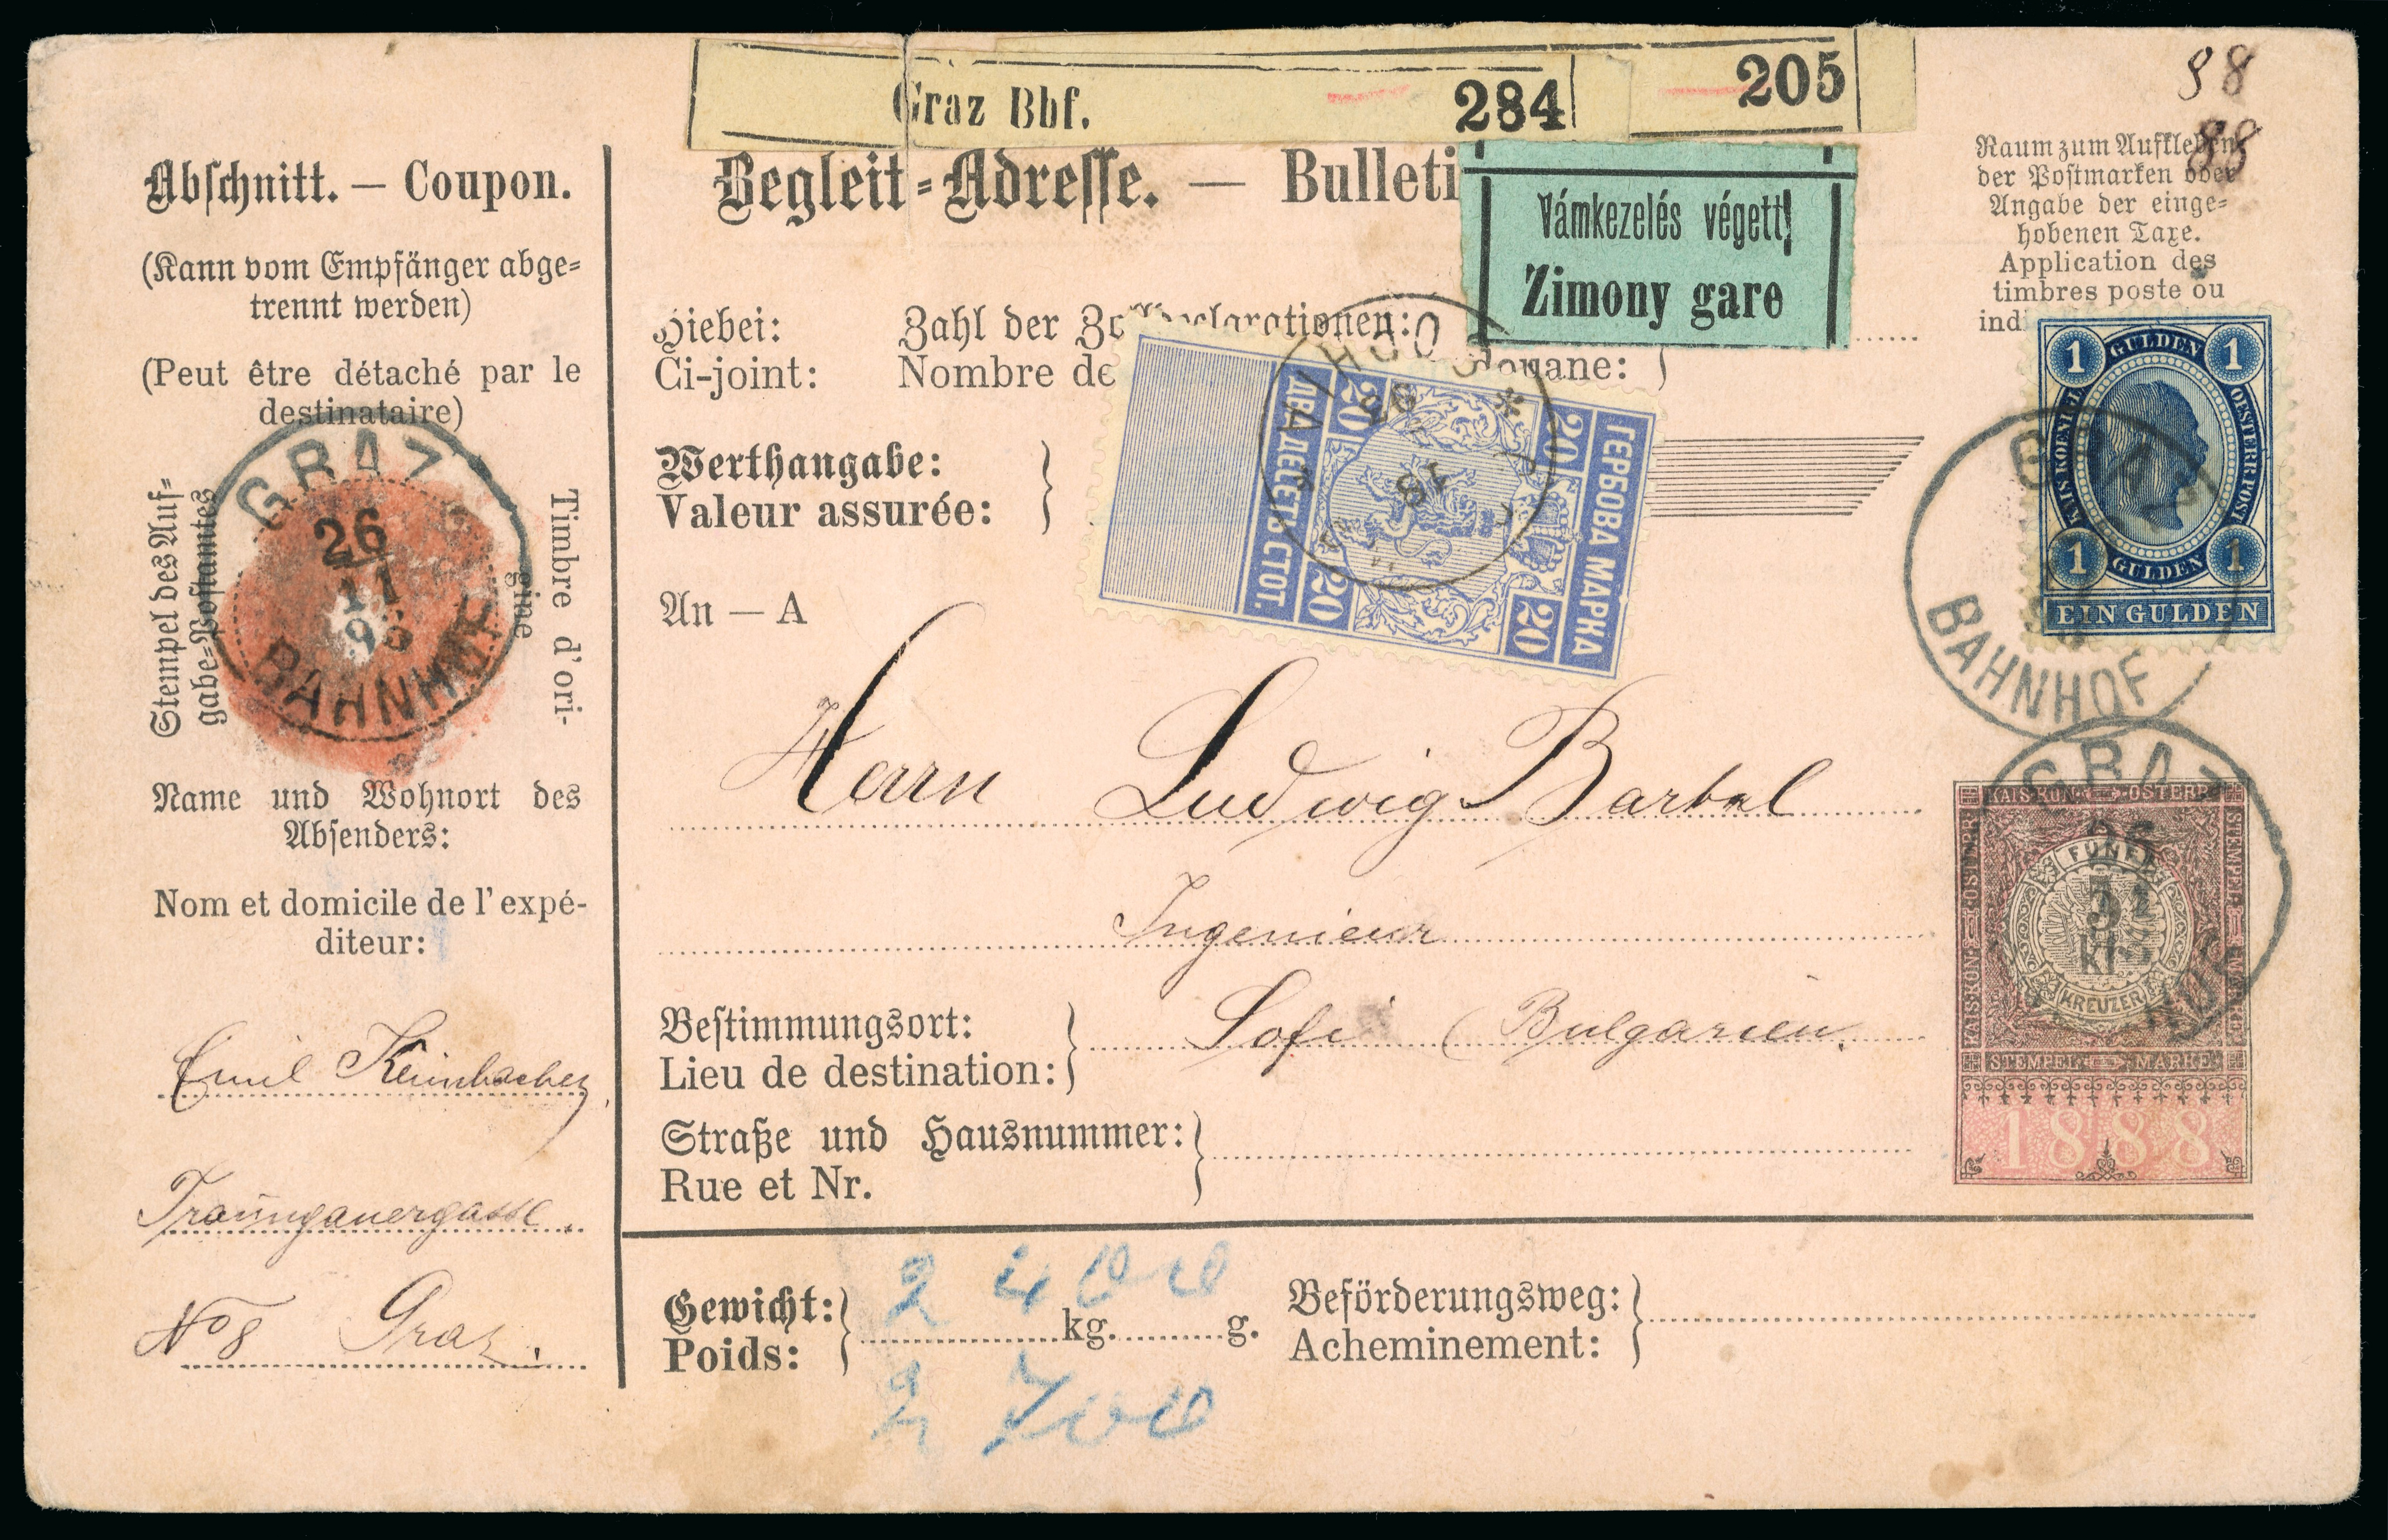 Graz Bhf. 284
205
98
88
Abschnitt. — Coupon.
(Kann vom Empfänger abge-
trennt werden)
(Peut être détaché par le
destinataire)
Stempel des Auf-
gabe-Postamtes
Timbre d'ori-
gine
GRAZ
26
11
95
BAHNHOF
Name und Wohnort des
Absenders:
Nom et domicile de l'expé-
diteur:
Emil
Traungauergasse
No 8 Graz.
Begleit-Adresse. — Bulleti
Vámkezelés végett!
Zimony gare
Hiebei: Zahl der Zolldeclarationen:
Ci-joint: Nombre de douane:
Werthangabe:
Valeur assurée:
ГЕРБОВА МАРКА
20 20
20 20
ДВАДЕСЕТЬ СТОТ.
An — A
Herrn Ludwig Bartel
Ingenieur
Bestimmungsort:
Lieu de destination:
Sofi (Bulgarien.
Straße und Hausnummer:
Rue et Nr.
Gewicht:
Poids:
2 400
kg. g.
2 700
Beförderungsweg:
Acheminement:
Raum zum Aufkleben
der Postmarken oder
Angabe der einge-
hobenen Taxe.
Application des
timbres poste ou
ind
1 GULDEN 1
KAIS KOENIGL OESTERR POST
1 GULDEN 1
EIN GULDEN
GRAZ
BAHNHOF
GRAZ
26
KAIS KÖN ÖSTERR
FÜNF
5
kr
KREUZER
STEMPEL MARKE
1888